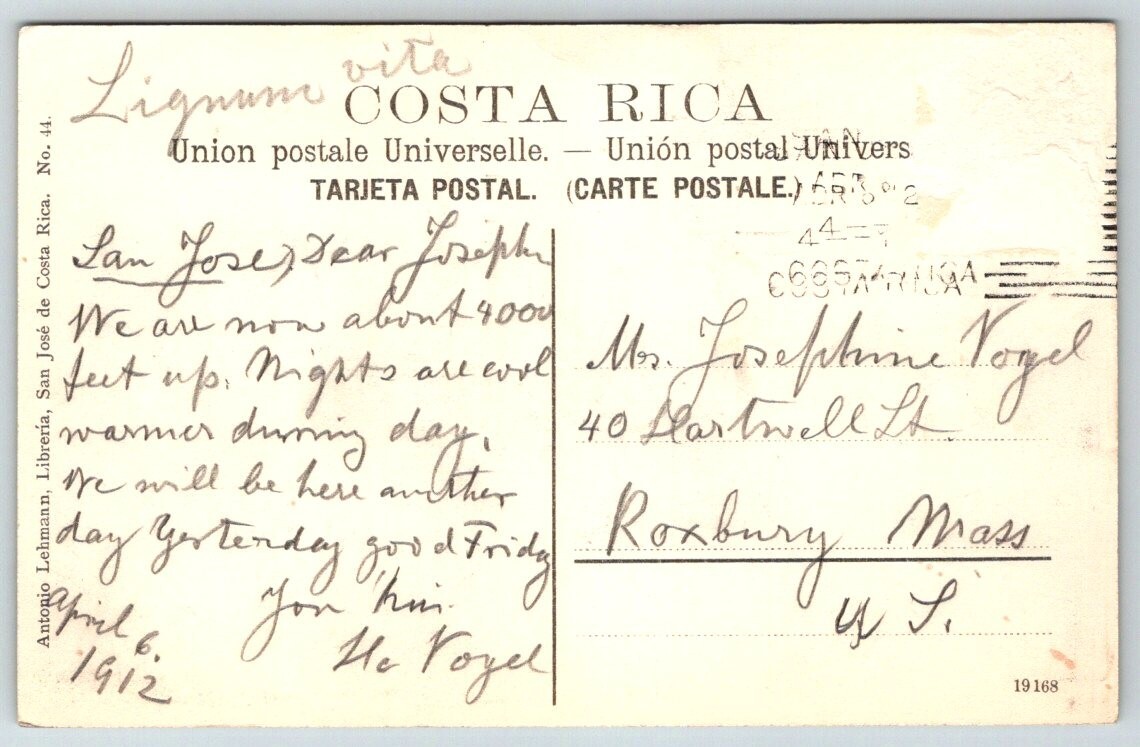 Lignum vita
COSTA RICA
Union postale Universelle. — Unión postal Univers
TARJETA POSTAL. (CARTE POSTALE.)
San Jose, Dear Joseph
We are now about 4000
feet up. Nights are cool
warmer during day.
We will be here another
day Yesterday good Friday
April 6.
1912
Vogel
Mrs. Josephine Vogel
40 Hartwell St.
Roxbury Mass
U S.
COSTA RICA
19168
Antonio Lehmann, Librería, San José de Costa Rica. No. 44.